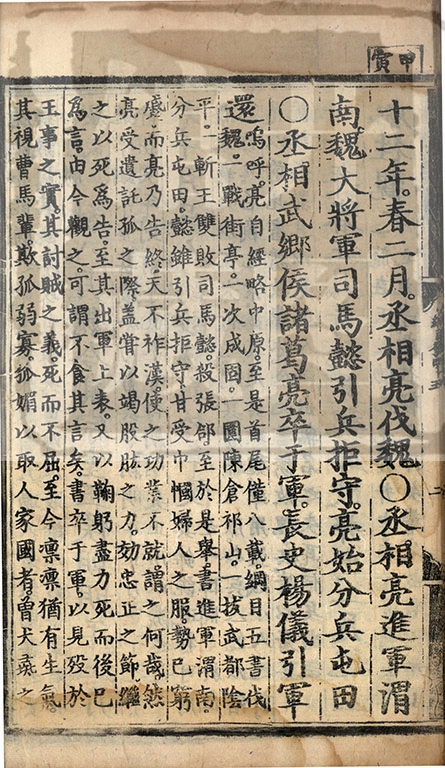 甲寅
十二年。春二月。丞相亮伐魏。〇丞相亮進軍渭
南。魏大將軍司馬懿引兵拒守。亮始分兵屯田
〇丞相武鄉侯諸葛亮卒于軍。長史楊儀引軍
還嗚呼。亮自經略中原。至是首尾僅八載。綱目五書伐
魏。一戰街亭。一次成固。一圍陳倉祁山。一拔武都陰
平。一斬王雙敗司馬懿。殺張郃至於是舉。書進軍渭南。
分兵屯田。懿雖引兵拒守。甘受巾幗婦人之服。勢已窮
蹙。而亮乃告終。天不祚漢。使之功業不就。謂之何哉。然
亮受遺託孤之際。蓋嘗以竭股肱之力。効忠正之節。繼
之以死爲告。至其出軍上表。又以鞠躬盡力死而後已
爲言。由今觀之。可謂不食其言矣。書卒于軍。以見歿於
王事之實。其討賊之義。死而不屈。至今凛凛猶有生氣。
其視曹馬輩。欺孤弱寡。狐媚以取人家國者。曾犬彘之